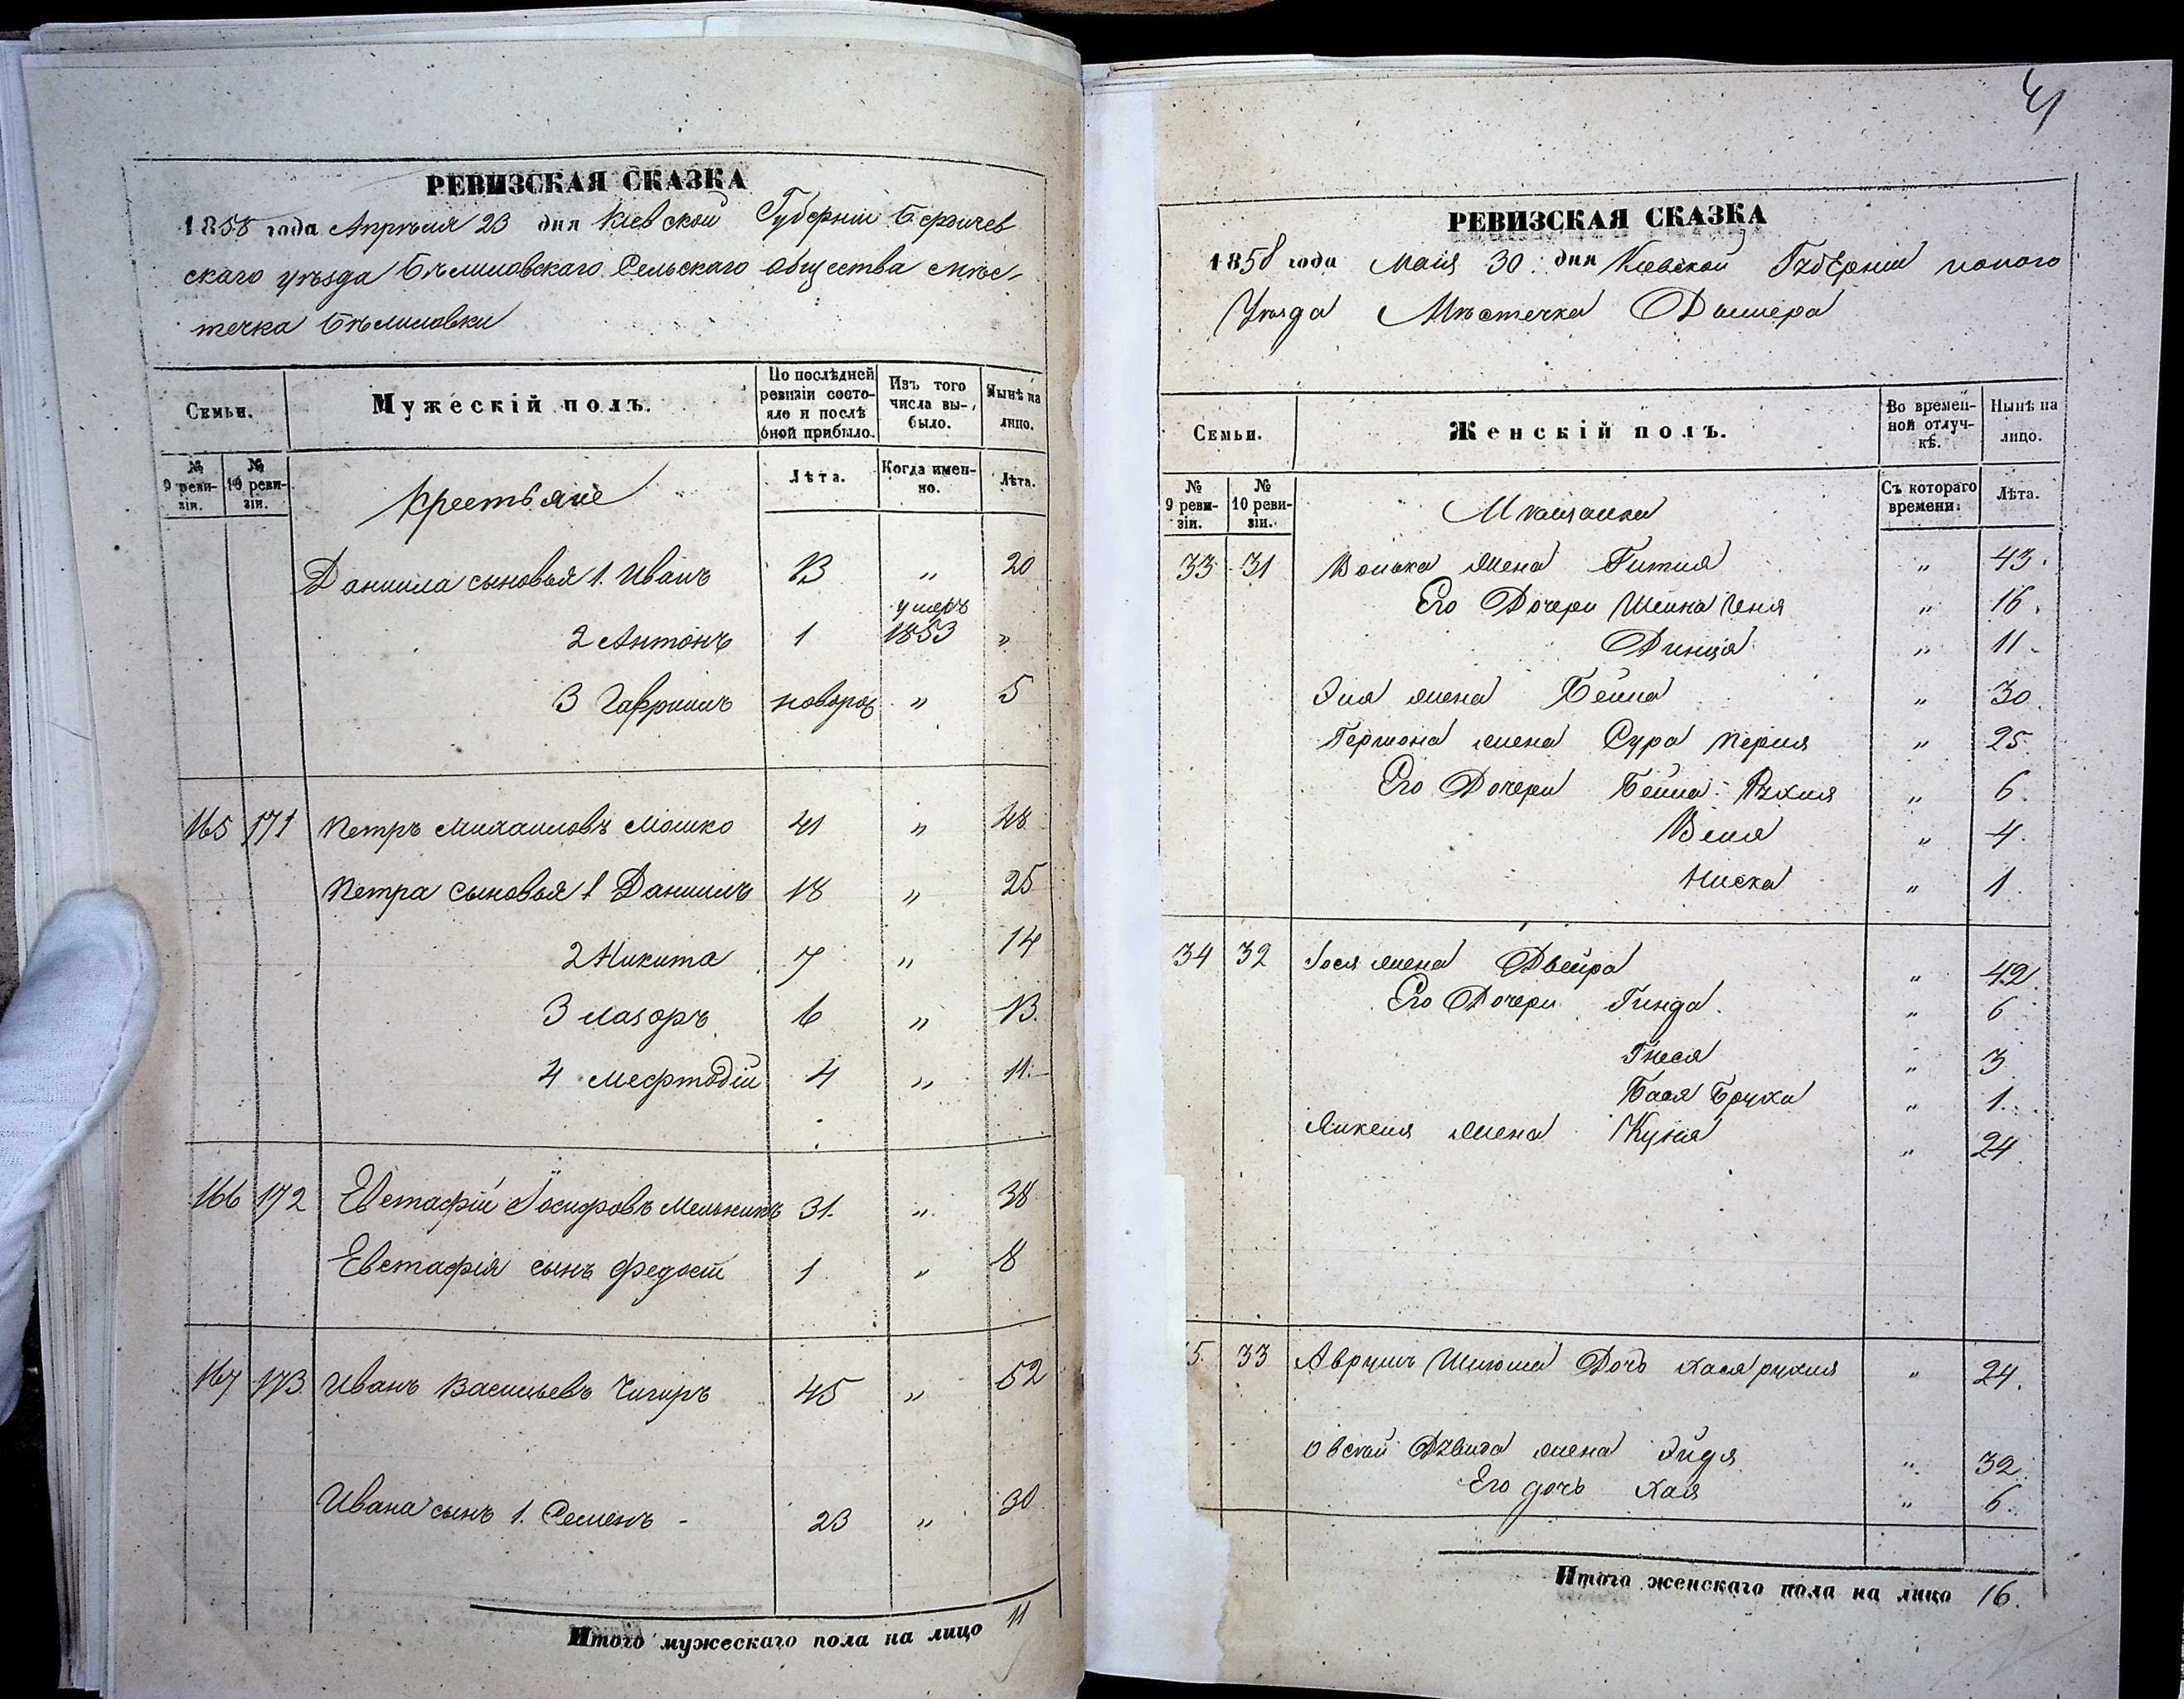 РЕВИЗСКАЯ СКАЗКА
1858 года Апрѣля 23 дня Кіевской Губерніи Бердичев
скаго уѣзда Бѣлиловскаго Сельскаго Общества мѣс-
течка Бѣлиловки
Семьи.
Мужескій полъ.
По послѣдней ревизіи состо-
яло и послѣ оной прибыло.
Изъ того числа вы-
было.
Нынѣ на лицо.
№ 9 реви-
зіи.
№ 10 реви-
зіи.
Крестьяне
Лѣта.
Когда имен-
но.
Лѣта.
Даниила сыновья 1. Иванъ 13 " 20
умеръ
2 Антонъ 1 1853 "
3 Гавріилъ новорож " 5
165 171 Петръ Михаиловъ Мошко 41 " 48
Петра сыновья 1 Даниилъ 18 " 25
2 Никита 7 " 14
3 Лазоръ 6 " 13.
4 Мефтодій 4 " 11.
166 172 Евстафій Іосифовъ Мельникъ 31. " 38
Евстафія сынъ Федосій 1 " 8
167 173 Иванъ Васильевъ Чигиръ 45 " 52
Ивана сынъ 1. Семенъ - 23 " 30
Итого мужескаго пола на лицо 11
41
РЕВИЗСКАЯ СКАЗКА
1858 года Маія 30 дня Кіевской Губерніи
Уѣзда Мѣстечка Дымера
Семьи.
Женскій полъ.
Во времен-
ной отлуч-
кѣ.
Нынѣ на лицо.
№ 9 реви-
зіи.
№ 10 реви-
зіи.
Мѣщанки
Съ котораго времени.
Лѣта.
33 31 Волька жена Гитля " 43.
Его Дочери Шейна Геня " 16.
Динця " 11
жена Бейла " 30
Гершона жена Сура Перля " 25
Его Дочери Бейла Рухля " 6.
Веля " 4.
Ниска " 1.
34 32 Іося жена Двейра " 42.
Его Дочери Гинда " 6
Гнеся " 3
Бася Бруха " 1.
Янкеля жена Куня " 24
5. 33 Аврумъ Шлема Дочь Хася рухля " 24.
Овсѣй Дувида жена Эйдя " 32
Его дочь Хая " 6.
Итого женскаго пола на лицо 16.